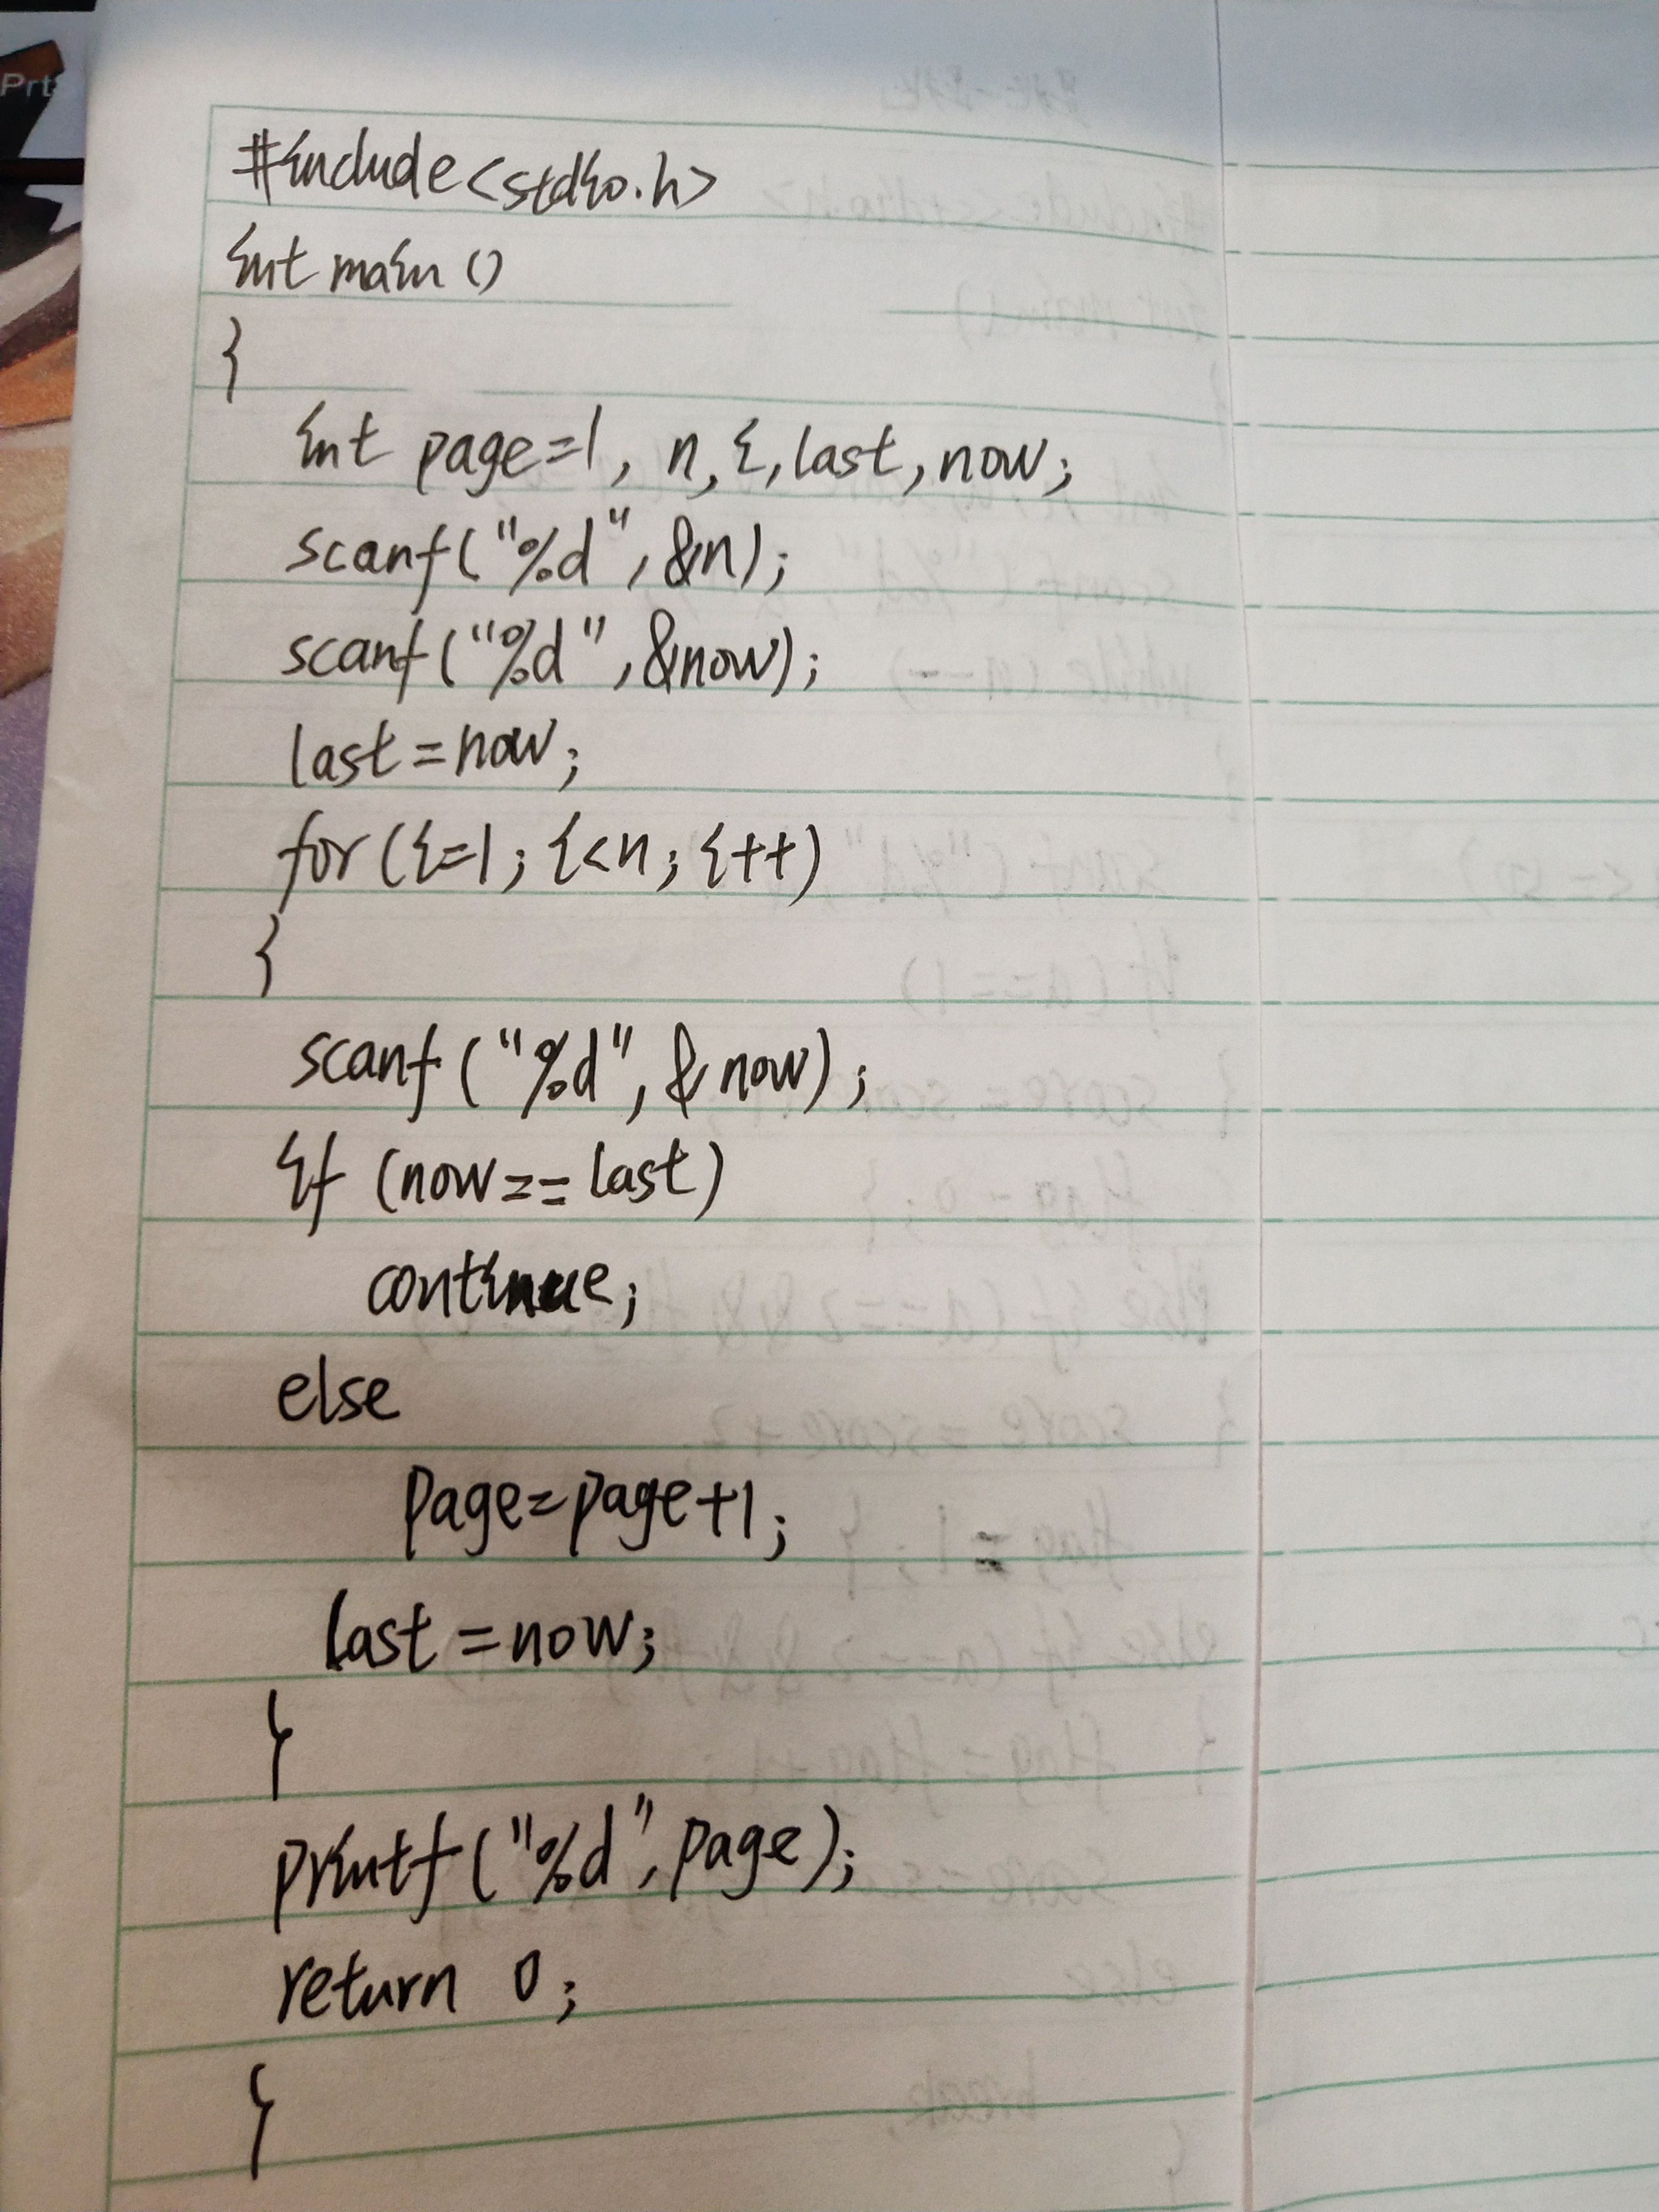 Prt
#include<stdio.h>
int main ()
{
int page=1, n, i, last, now;
scanf("%d", &n);
scanf("%d", &now);
last=now;
for(i=1; i<n; i++)
{
scanf("%d", &now);
if (now==last)
continue;
else
page=page+1;
last=now;
}
printf("%d", page);
return 0;
}